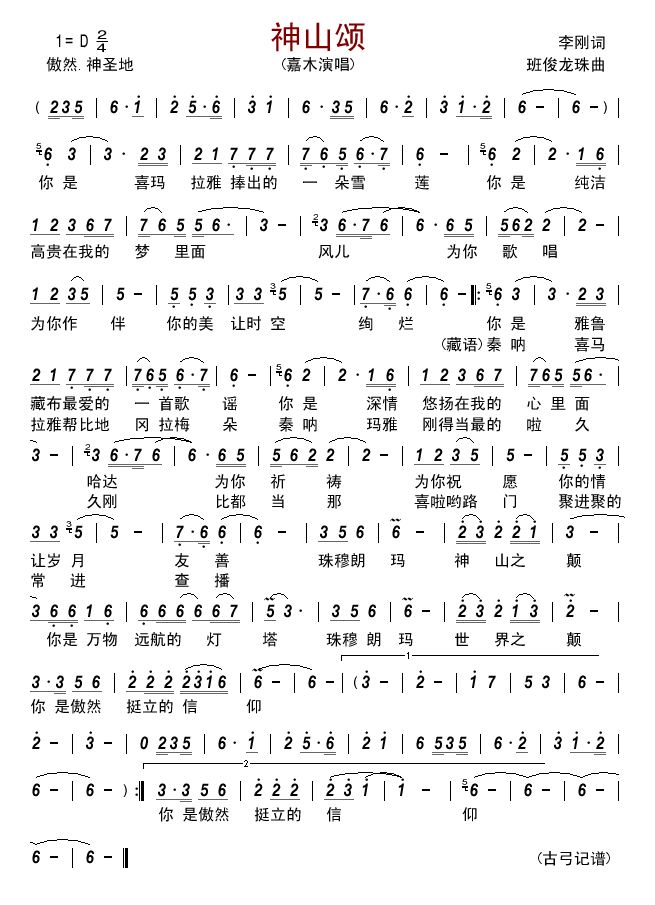 神山颂
1= D 2/4
李刚词
傲然.神圣地
(嘉木演唱)
班俊龙珠曲
( 235 | 6·1 | 2 5·6 | 3 1 | 6·35 | 6·2 | 3 1·2 | 6 - | 6 - |
5 6 3 | 3· 23 | 21 777 | 765 6·7 | 6 - | 5 6 2 | 2· 16 |
你是 喜玛 拉雅 捧出的 一 朵雪 莲 你是 纯洁
12 367 | 765 56· | 3 - | 2 3 6·76 | 6·65 | 562 2 | 2 - |
高贵在我的 梦 里面 风儿 为你 歌 唱
12 35 | 5 - | 5 53 | 33 3 5 | 5 - | 7·6 6 | 6 - ‖: 5 6 3 | 3· 23 |
为你作 伴 你的美 让时空 绚 烂 你是 雅鲁
(藏语)秦呐 喜马
21 777 | 765 6·7 | 6 - | 5 6 2 | 2· 16 | 12 367 | 765 56· |
藏布最爱的 一 首歌 谣 你是 深情 悠扬在我的 心 里面
拉雅帮比地 冈 拉梅 朵 秦呐 玛雅 刚得当最的 啦 久
3 - | 2 3 6·76 | 6·65 | 562 2 | 2 - | 12 35 | 5 - | 55 3 |
哈达 为你 祈 祷 为你祝 愿 你的情
久刚 比都 当 那 喜啦哟路 门 聚进聚的
33 3 5 | 5 - | 7·6 6 | 6 - | 35 6 | 6 - | 23 2 21 | 3 - |
让岁月 友 善 珠穆朗 玛 神 山之 颠
常 进 查 播
3 66 16 | 666 667 | 5 3· | 35 6 | 6 - | 23 2 13 | 2 - |
你是 万物 远航的 灯 塔 珠穆朗 玛 世 界之 颠
3·3 56 | 222 2316 | 6 - | 6 - | (3 - | 2 - | 1 7 | 5 3 | 6 - |
1
你 是傲然 挺立的 信 仰
2 - | 3 - | 0 235 | 6·1 | 2 5·6 | 2 1 | 6 535 | 6·2 | 3 1·2 |
2
6 - | 6 - ) :‖ 3·3 56 | 222 2 | 23 1 | 1 - | 5 6 - | 6 - | 6 - |
你 是傲然 挺立的 信 仰
6 - | 6 - ‖
(古弓记谱)